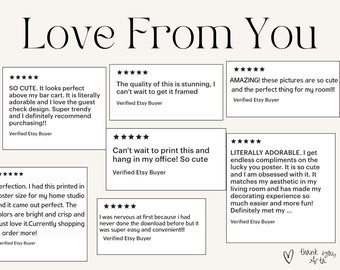 Love From You
★★★★★
SO CUTE. It looks perfect
above my bar cart. It is literally
adorable and I love the guest
check design. Super trendy
and I definitely recommend
purchasing!!
Verified Etsy Buyer
★★★★★
The quality of this is stunning, I
can't wait to get it framed
Verified Etsy Buyer
★★★★★
AMAZING! these pictures are so cute
and the perfect thing for my room!!!
Verified Etsy Buyer
★★★★★
Can't wait to print this and
hang in my office! So cute
Verified Etsy Buyer
★★★★★
LITERALLY ADORABLE. I get
endless compliments on the
lucky you poster. It is so cute
and I am obsessed with it. It
matches my aesthetic in my
living room and has made my
decorating experience so
much easier and more fun!
Definitely met my ...
Verified Etsy Buyer
★★★★★
erfection. I had this printed in
oster size for my home studio
nd it came out perfect. The
olors are bright and crisp and
just love it.Currently shopping
o order more!
Verified Etsy Buyer
★★★★★
I was nervous at first because i had
never done the download before but it
was super easy and convenient!!!
Verified Etsy Buyer
thank you,